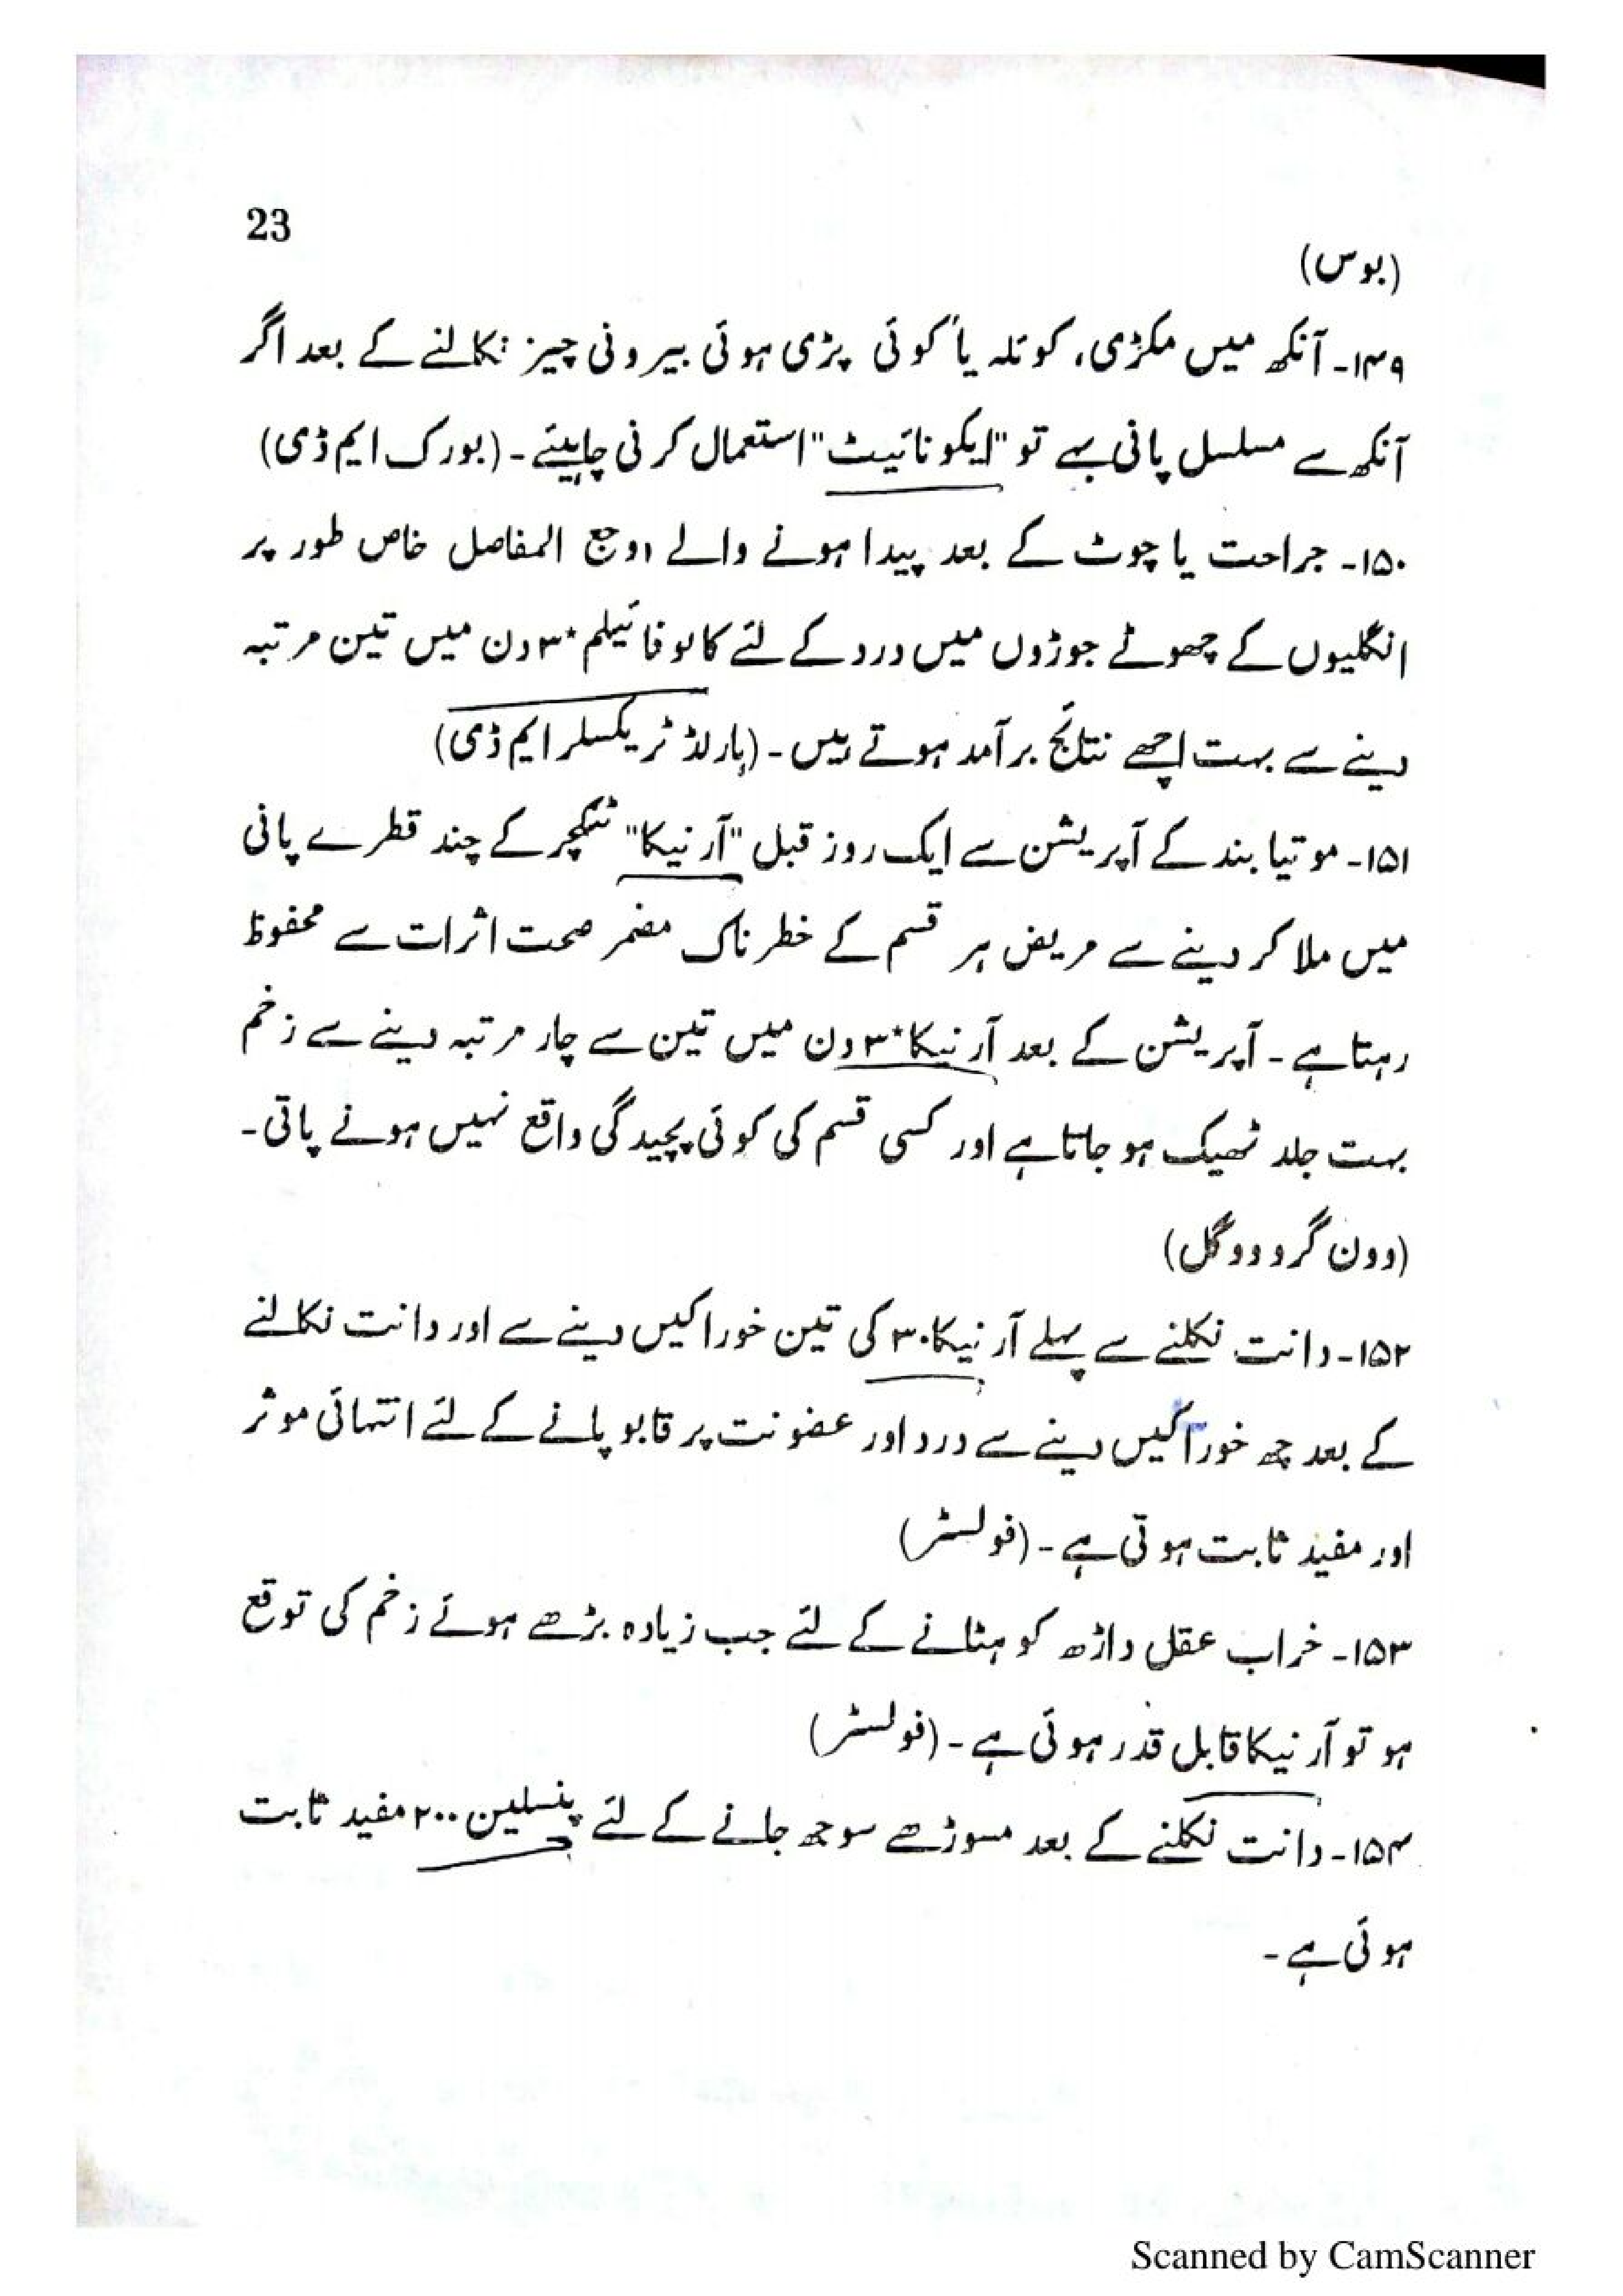 23
(بوس)
۱۴۹۔ آنکھ میں مکڑی، کوئلہ یا کوئی پڑی ہوئی بیرونی چیز نکالنے کے بعد اگر
آنکھ سے مسلسل پانی بہے تو "ایکونائیٹ" استعمال کرنی چاہیئے۔ (بورک ایم ڈی)
۱۵۰۔ جراحت یا چوٹ کے بعد پیدا ہونے والے اوجع المفاصل خاص طور پر
انگلیوں کے چھوٹے جوڑوں میں درد کے لئے کالوفائیلم ۳۰ دن میں تین مرتبہ
دینے سے بہت اچھے نتائج برآمد ہوتے ہیں۔ (ہارلڈ ٹریکسلر ایم ڈی)
۱۵۱۔ موتیا بند کے آپریشن سے ایک روز قبل "آرنیکا" ٹنکچر کے چند قطرے پانی
میں ملا کر دینے سے مریض ہر قسم کے خطرناک مضمر صحت اثرات سے محفوظ
رہتا ہے۔ آپریشن کے بعد آرنیکا ۳۰ دن میں تین سے چار مرتبہ دینے سے زخم
بہت جلد ٹھیک ہو جاتا ہے اور کسی قسم کی کوئی پیچیدگی واقع نہیں ہونے پاتی۔
(وون گرووو گل)
۱۵۲۔ دانت نکلنے سے پہلے آرنیکا ۳۰ کی تین خوراکیں دینے سے اور دانت نکالنے
کے بعد چھ خوراکیں دینے سے درد اور عفونت پر قابو پانے کے لئے انتہائی موثر
اور مفید ثابت ہوتی ہے۔ (فولسٹر)
۱۵۳۔ خراب عقل داڑھ کو ہٹانے کے لئے جب زیادہ بڑھے ہوئے زخم کی توقع
ہو تو آرنیکا قابل قدر ہوئی ہے۔ (فولسٹر)
۱۵۴۔ دانت نکلنے کے بعد مسوڑھے سوجھ جانے کے لئے پنسلین ۲۰۰ مفید ثابت
ہوئی ہے۔
Scanned by CamScanner